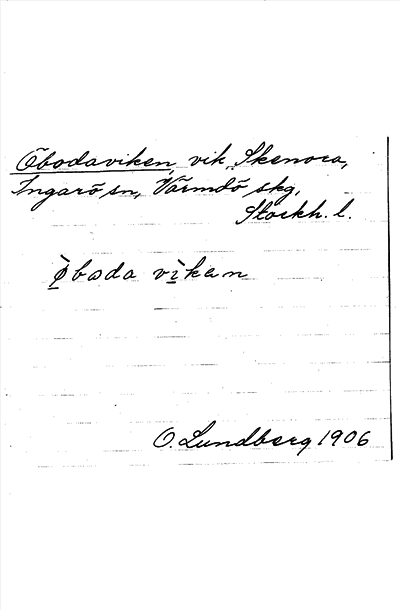 Öbodaviken, vik, Skenora,
Ingarö sn, Värmdö skg,
Stockh. l.
ø̀boda vìkən
O. Lundberg 1906